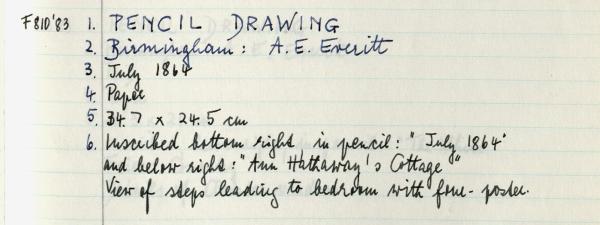 F810'83 1. PENCIL DRAWING
2. Birmingham: A.E. Everitt
3. July 1864
4. Paper
5. 34.7 x 24.5 cm
6. Inscribed bottom right in pencil: "July 1864"
and below right: "Ann Hathaway's Cottage"
View of steps leading to bedroom with four-poster.